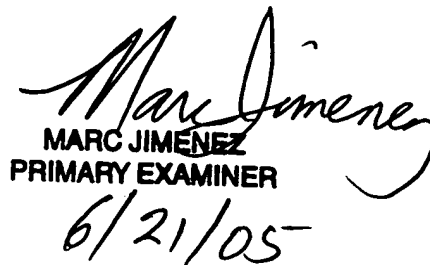 Marc Jimenez
MARC JIMENEZ
PRIMARY EXAMINER
6/21/05